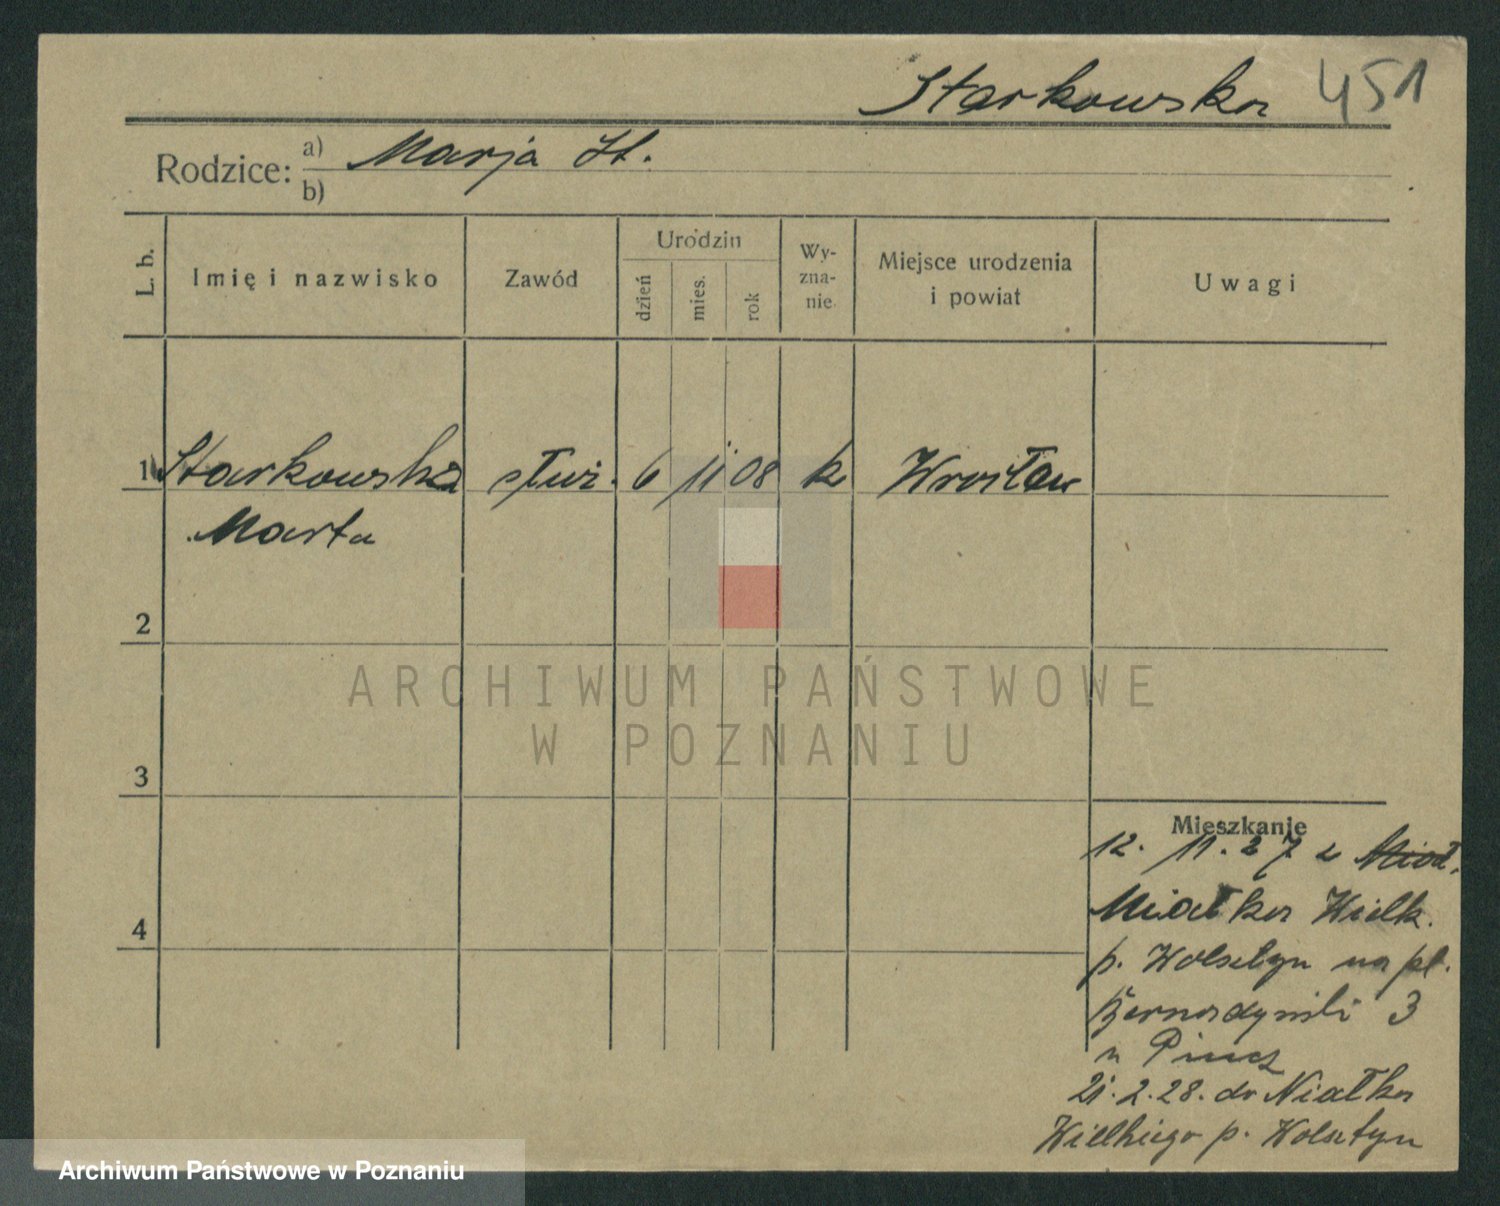 Starkowska 451
Rodzice: a) Marja St.
b)
L. b. Imię i nazwisko Zawód Urodzin dzień mies. rok Wy-zna-nie Miejsce urodzenia i powiat Uwagi
1 Starkowska służ. 6 11 08 k Wrocław
Marta
2
3
4
Mieszkanie
12. 11. 27 z
Miałka Wielk.
p. Wolsztyn na pl.
Bernardyński 3
u
21. 2. 28. do Niałka
Wielkiego p. Wolsztyn
ARCHIWUM PAŃSTWOWE
W POZNANIU
Archiwum Państwowe w Poznaniu